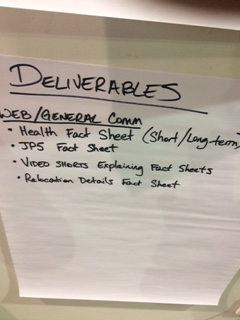 DELIVERABLES
WEB/GENERAL Comm
• Health Fact Sheet (Short/Long-term)
• JP5 Fact Sheet
• VIDEO SHORTS Explaining Fact Sheets
• Relocation Details Fact Sheet